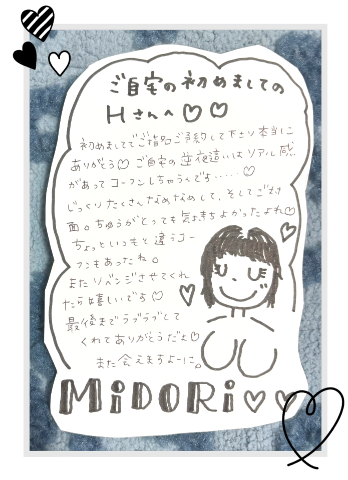 ご自宅の初めましての
Hさんへ♡♡
初めましてでご指名ご予約して下さり本当に
ありがとう♡ご自宅の逆夜這いはリアル感
があってコーフンしちゃうんです.....♡
じっくりたくさんなめなめして、そしてご対
面。ちゅうがとっても気持ちよかったよれ♡
ちょっといつもと違うコー
フンもあったね。
またリベンジさせてくれ
たら嬉しいです♡
最後までラブラブして
くれてありがとうだよ♡
また会えますよーに。
MiDORi♡♡